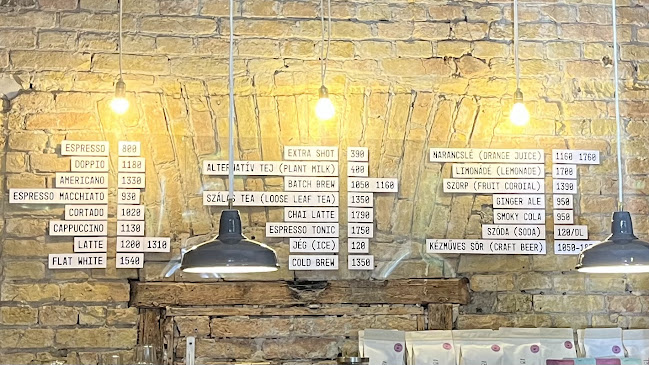 ESPRESSO 800
DOPPIO 1180
AMERICANO 1330
ESPRESSO MACCHIATO 930
CORTADO 1020
CAPPUCCINO 1130
LATTE 1200 1310
FLAT WHITE 1540
EXTRA SHOT 390
ALTERNATÍV TEJ (PLANT MILK) 400
BATCH BREW 1050 1160
SZÁLAS TEA (LOOSE LEAF TEA) 1350
CHAI LATTE 1790
ESPRESSO TONIC 1750
JÉG (ICE) 120
COLD BREW 1350
NARANCSLÉ (ORANGE JUICE) 1160 1760
LIMONÁDÉ (LEMONADE) 1700
SZÖRP (FRUIT CORDIAL) 1390
GINGER ALE 950
SMOKY COLA 950
SZÓDA (SODA) 120/DL
KÉZMŰVES SÖR (CRAFT BEER) 1050-